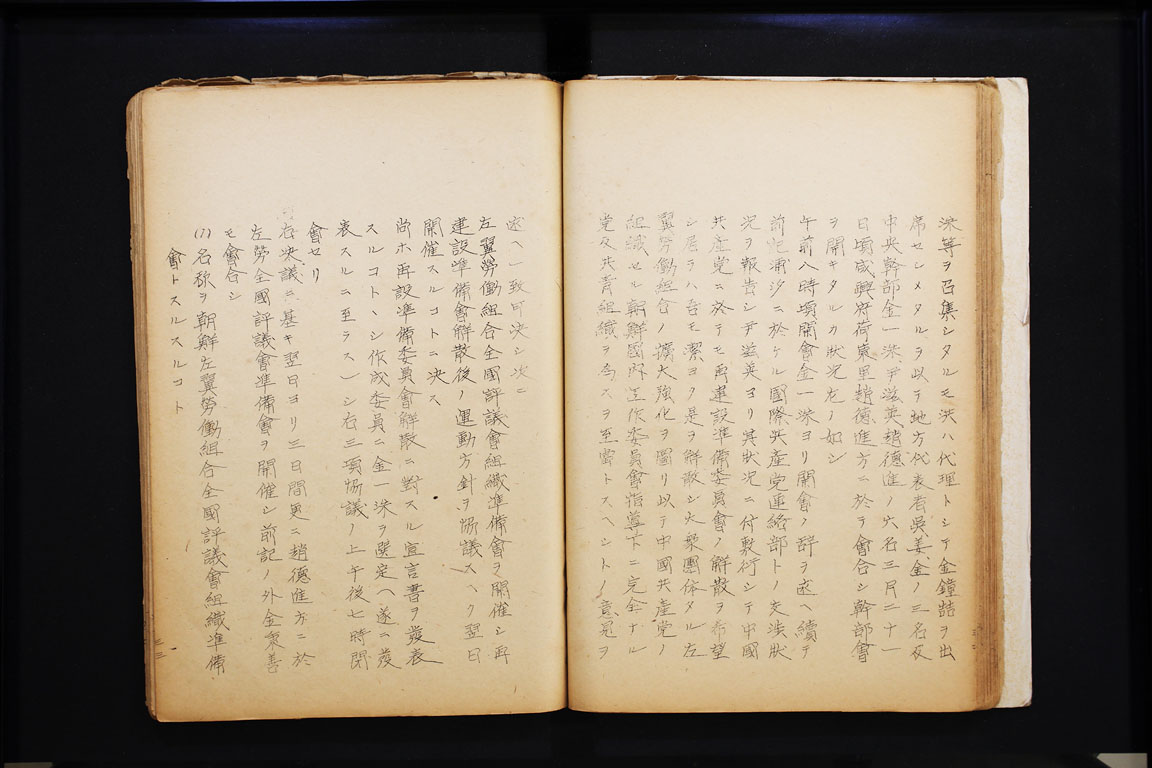 洙等ヲ召集シタルモ洪ハ代理トシテ金鐘喆ヲ出
席セシメタルヲ以テ地方代表者吳、姜、金ノ三名及
中央幹部金一洙、尹滋英、趙德進ノ六名三月二十一
日頃咸興府荷東里趙德進方ニ於テ會合シ幹部會
ヲ開キタルカ狀況左ノ如シ
午前八時頃開會金一洙ヨリ開會ノ辞ヲ述ヘ續テ
前記浦汐ニ於ケル國際共產党連絡部トノ交渉狀
況ヲ報告シ尹滋英ヨリ其狀況ニ付敷衍シテ中國
共產党ニ於テモ再建設準備委員會ノ解散ヲ希望
シ居ラハ吾モ潔ヨク是ヲ解散シ大衆團体タル左
翼勞働組合ノ擴大強化ヲ圖リ以テ中國共產党ノ
組織セル朝鮮國內工作委員會指導下ニ完全ナル
党及共靑組織ヲ為スヲ至當トスヘシトノ意見ヲ
述ヘ一致可決シ次ニ
左翼勞働組合全國評議會組織準備會ヲ開催シ再
建設準備會解散後ノ運動方針ヲ協議スヘク翌日
開催スルコトニ決ス
尚ホ再設準備委員會解散ニ對スル宣言書ヲ發表
スルコトヽシ作成委員ニ金一洙ヲ選定ヘ遂ニ發
表スルニ至ラス)シ右三項協議ノ上午後七時閉
會セリ
右決議ニ基キ翌日ヨリ三日間更ニ趙德進方ニ於
左勞全國評議會準備會ヲ開催シ前記ノ外金衆善
モ會合シ
(1)名称ヲ朝鮮左翼勞働組合全國評議會組織準備
會トスルスルコト
三二
三三